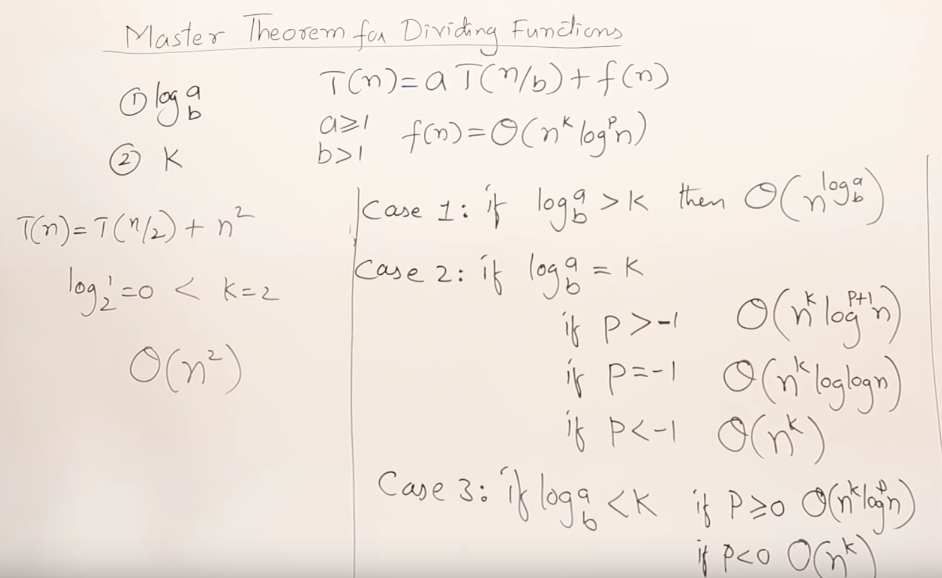 Master Theorem for Dividing Functions
① log_b^a
② K
T(n)= a T(n/b) + f(n)
a≥1
b>1
f(n)= O(n^k log^p n)
T(n)= T(n/2) + n^2
log_2^1 = 0 < k=2
O(n^2)
Case 1: if log_b^a > k then O(n^{log_b^a})
Case 2: if log_b^a = k
if P > -1 O(n^k log^{P+1} n)
if P = -1 O(n^k loglogn)
if P < -1 O(n^k)
Case 3: if log_b^a < k if P≥0 O(n^k log^p n)
if P<0 O(n^k)